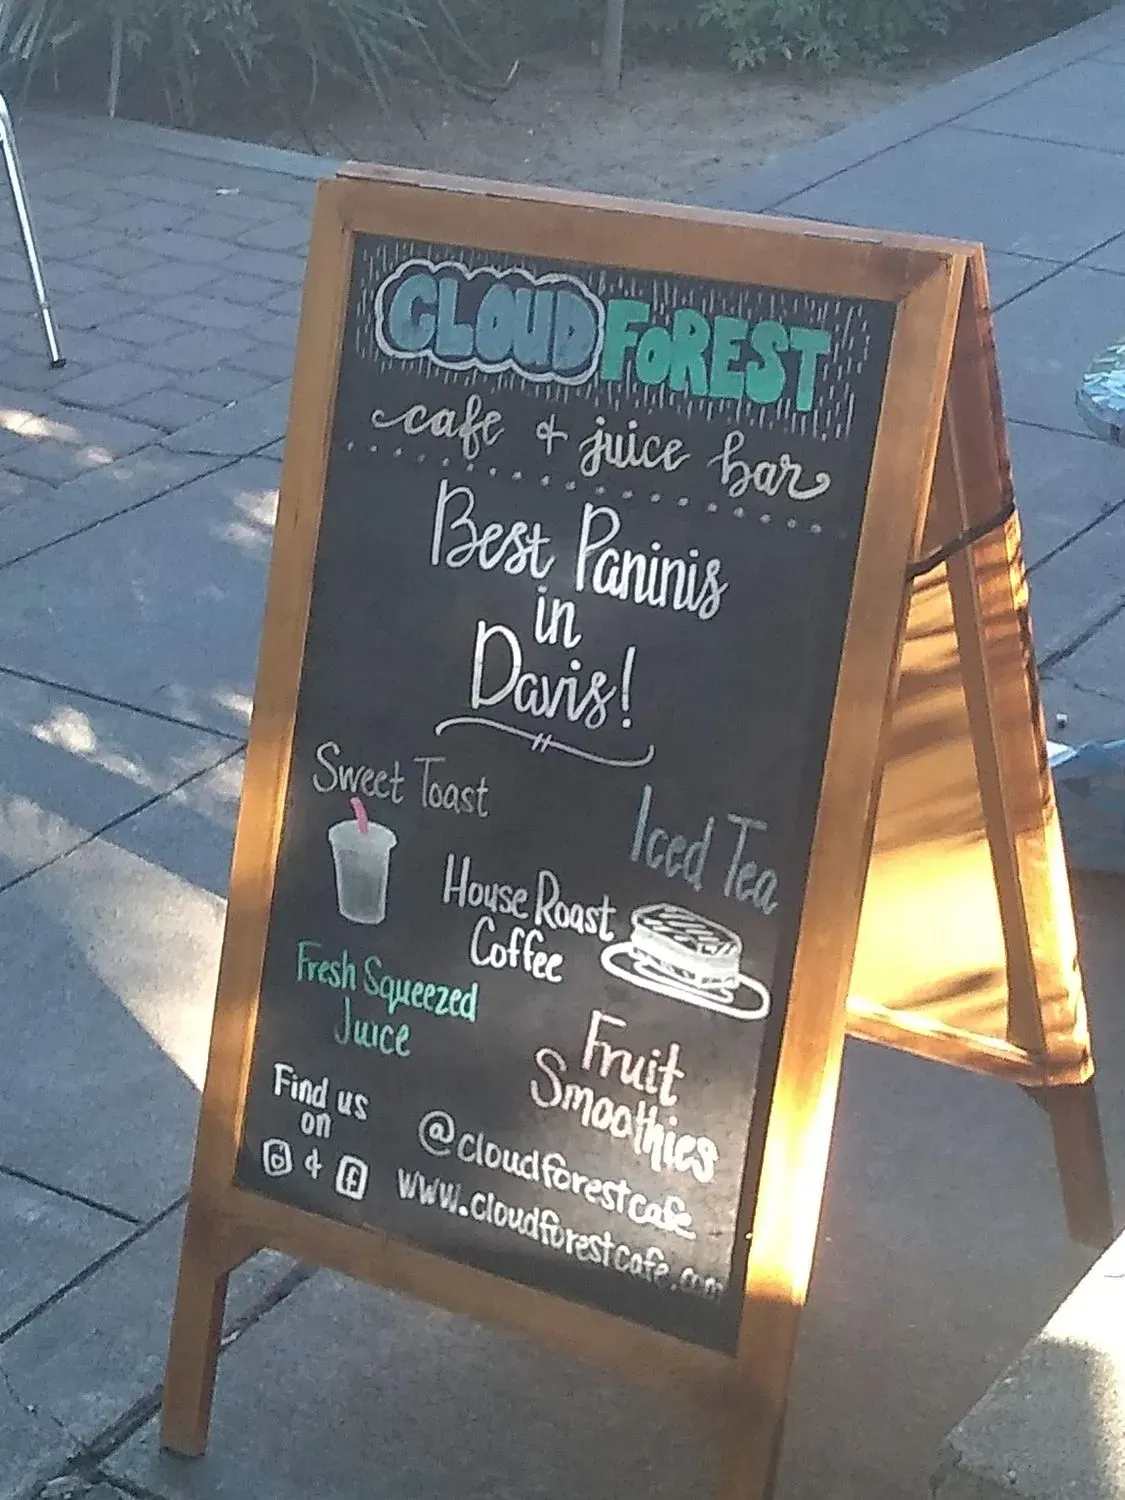 CLOUD FOREST
cafe & juice bar
Best Paninis
in
Davis!
Sweet Toast
Iced Tea
House Roast
Coffee
Fresh Squeezed
Juice
Fruit
Smoothies
Find us
on
&
@cloudforestcafe
www.cloudforestcafe.com